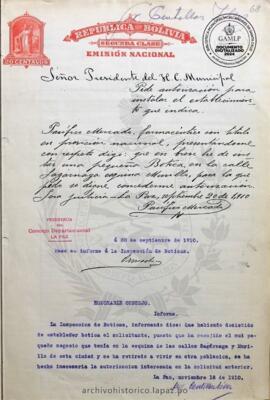 68
REPÚBLICA DE BOLIVIA
SEGUNDA CLASE
EMISIÓN NACIONAL
GAMLP
DOCUMENTO DIGITALIZADO 2024
Señor Presidente del H. C. Municipal
Pide autorización para
instalar el establecimiento
que indica.
Pacífico Mercado, farmacéutico con título
en provisión nacional, presentándome
con respeto digo: que
una pequeña Botica, en la calle
Sagárnaga esquina Murillo, para lo que
pido se digne concederme autorización
Será justicia. La Paz, septiembre 20 de 1910
Pacífico Mercado
PRESIDENCIA
DEL
Concejo Departamental
LA PAZ
á 22 de septiembre de 1910.
Pase en informe á la Inspección de Boticas.
HONORABLE CONSEJO.
Informe.
La Inspeccion de Boticas, informando dice: Que habiendo desistido
de establecer botica el solicitante, puesto que ha recojido el mui pe-
queño negocio que tenia en la esquina de las calles Sagárnaga y Muri-
llo de esta ciudad y se ha retirado a vivir en otra poblacion, se ha
hecho innecesaria la autorizacion interesada en la solicitud anterior.
La Paz, noviembre 18 de 1910.
archivohistorico.lapaz.bo